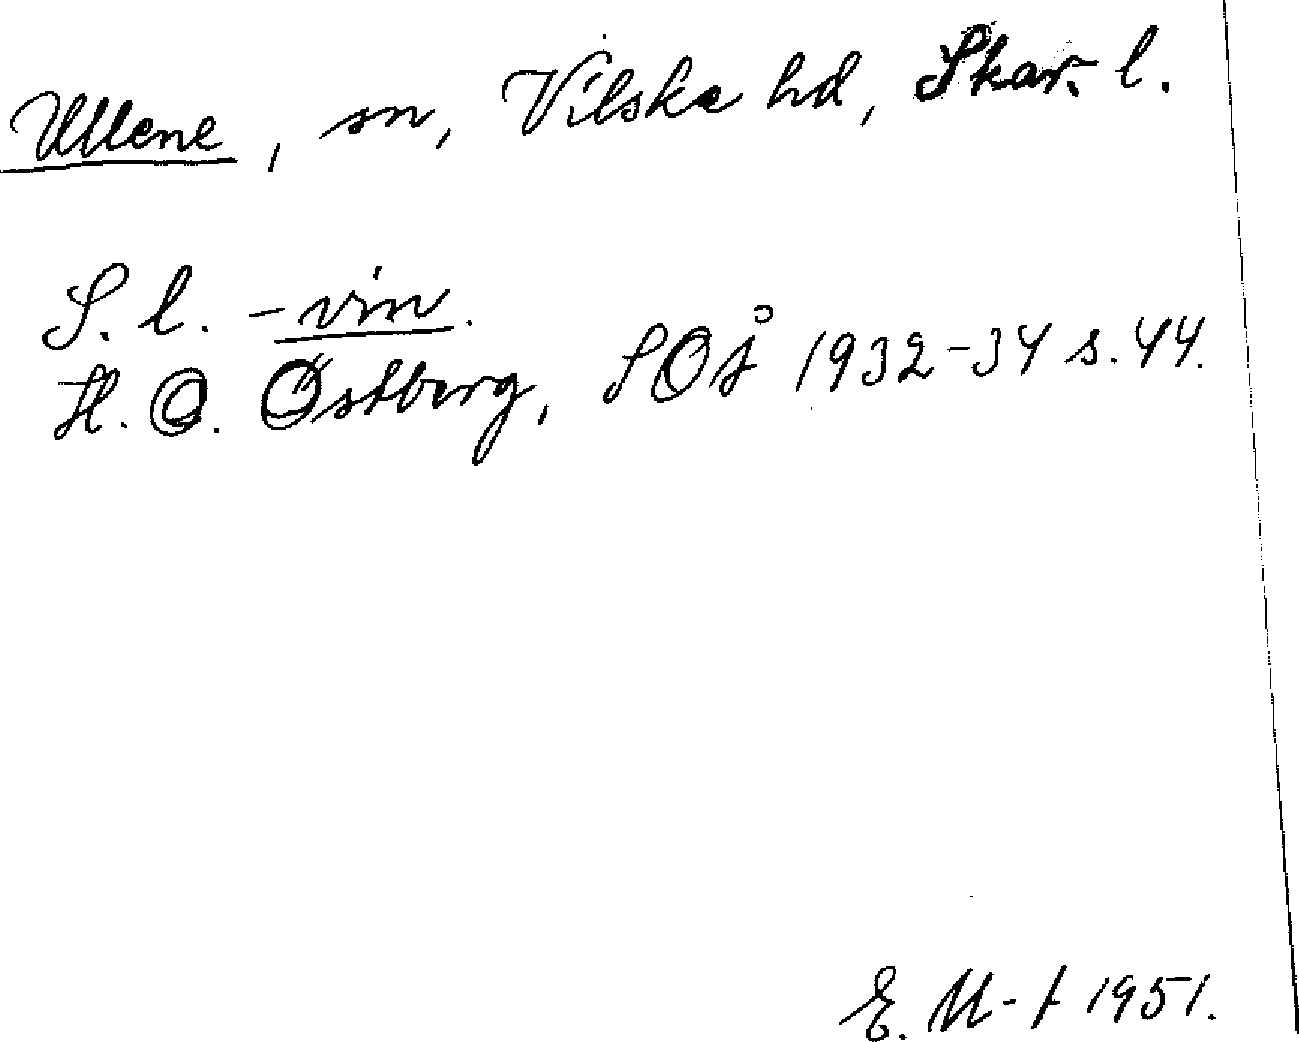 Ullene, sn, Vilske hd, Skar. l.
S. l. -vin.
H. O. Østberg, SOÅ 1932-34 s. 44.
E. M-t 1951.